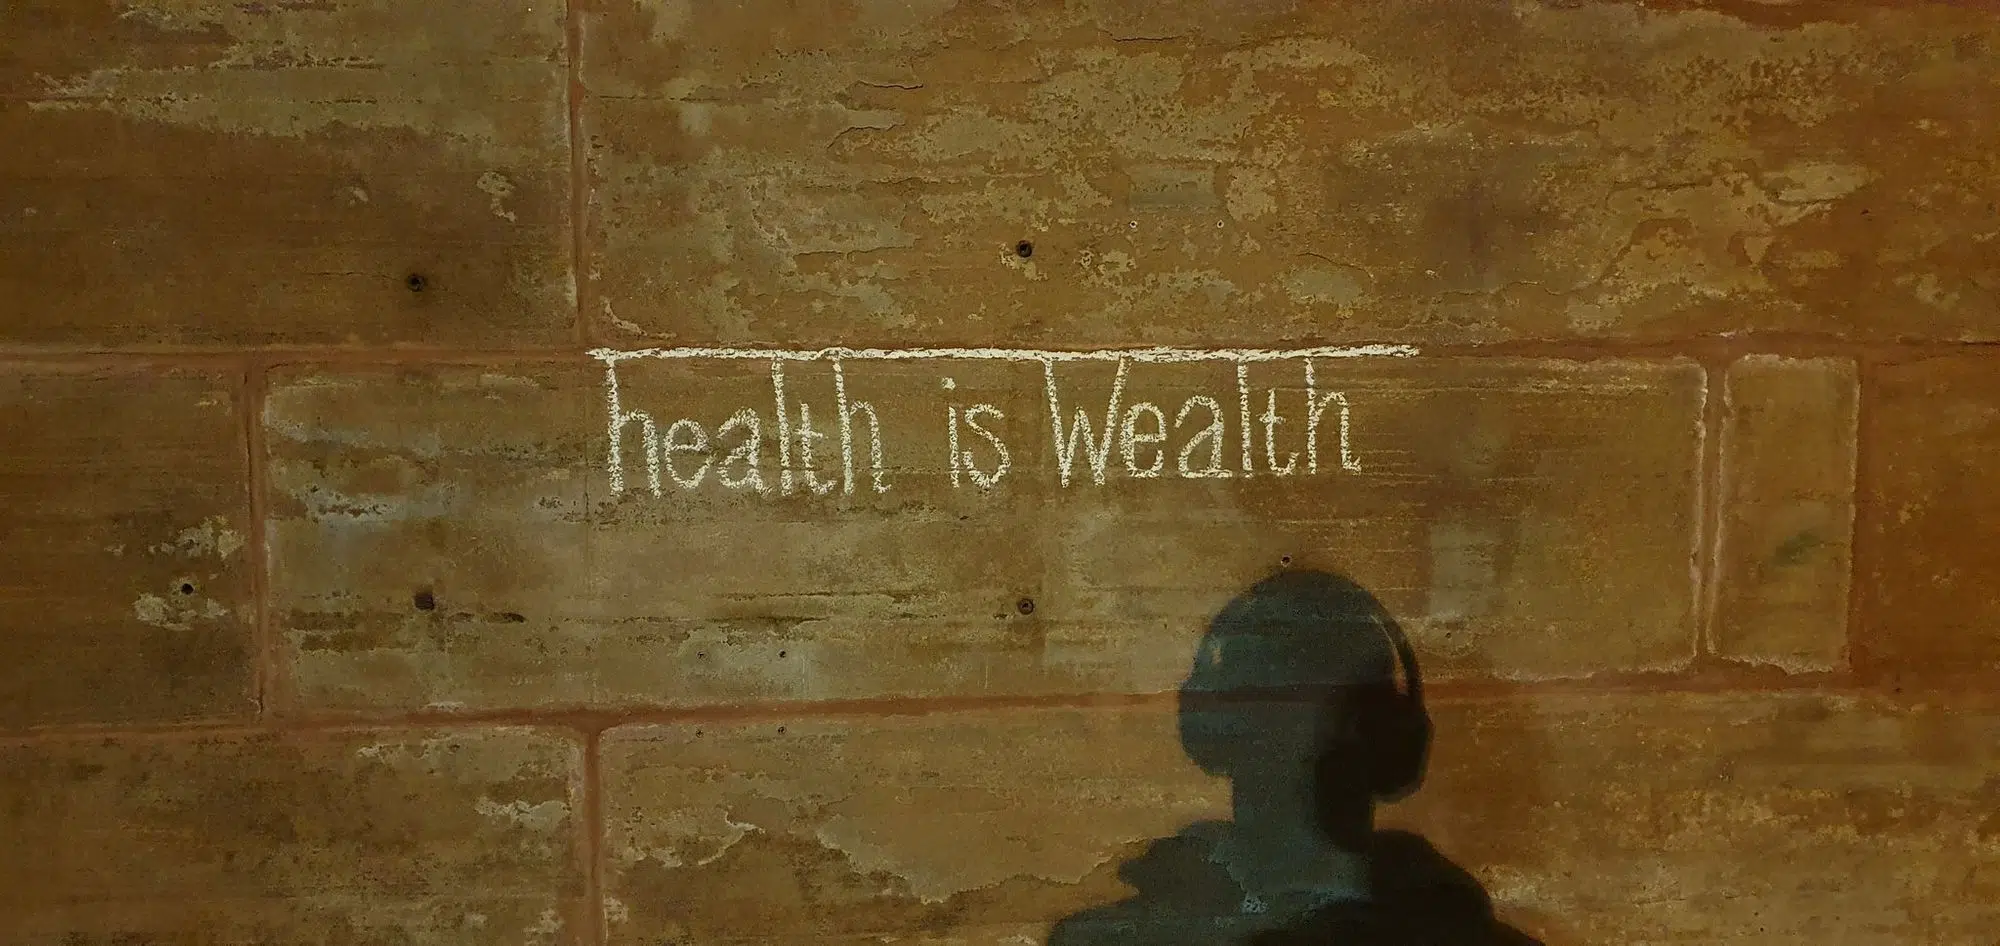 health is Wealth